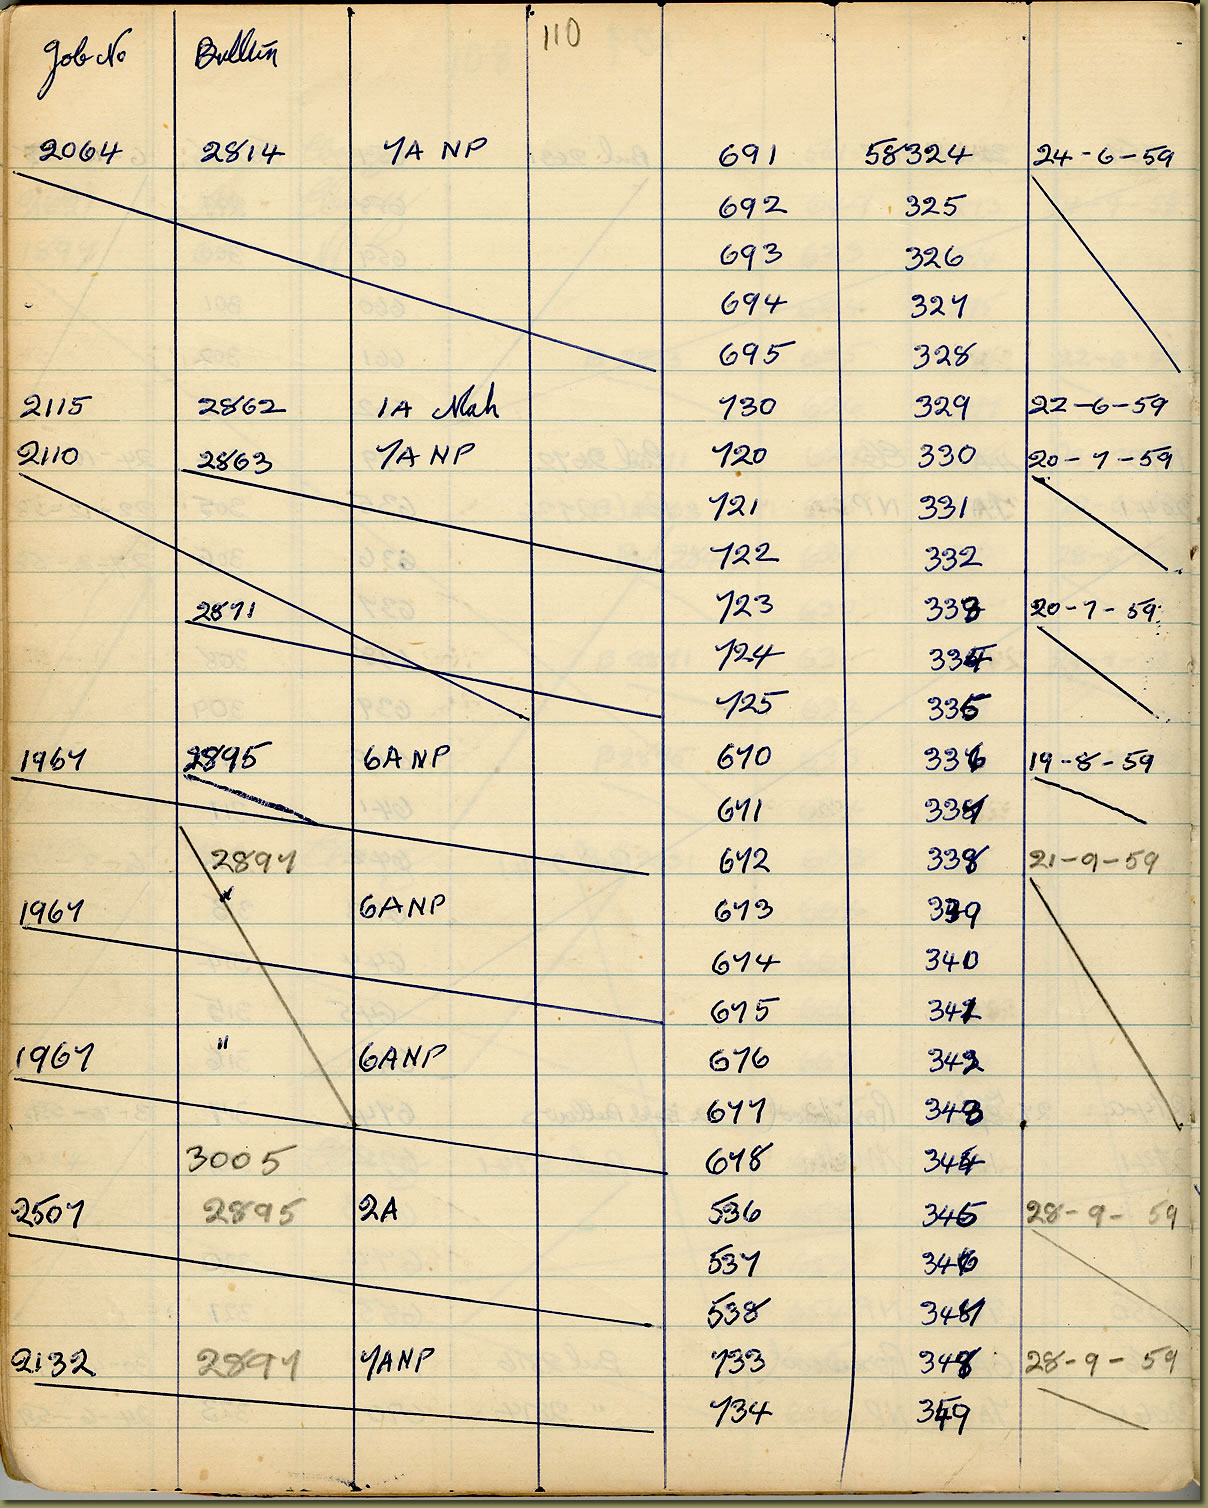 110
Job No Bulletin
2064 2814 7A NP 691 58324 24-6-59
692 325
693 326
694 327
695 328
2115 2862 1A Mah 730 329 22-6-59
2110 2863 7A NP 720 330 20-7-59
721 331
722 332
2871 723 333 20-7-59
724 334
725 335
1967 2895 6A NP 670 336 19-8-59
671 337
2897 672 338 21-9-59
1967 " 6ANP 673 339
674 340
675 341
1967 " 6ANP 676 342
677 343
3005 678 344
2507 2895 2A 536 345 28-9-59
537 346
538 347
2132 2897 7ANP 733 348 28-9-59
734 349